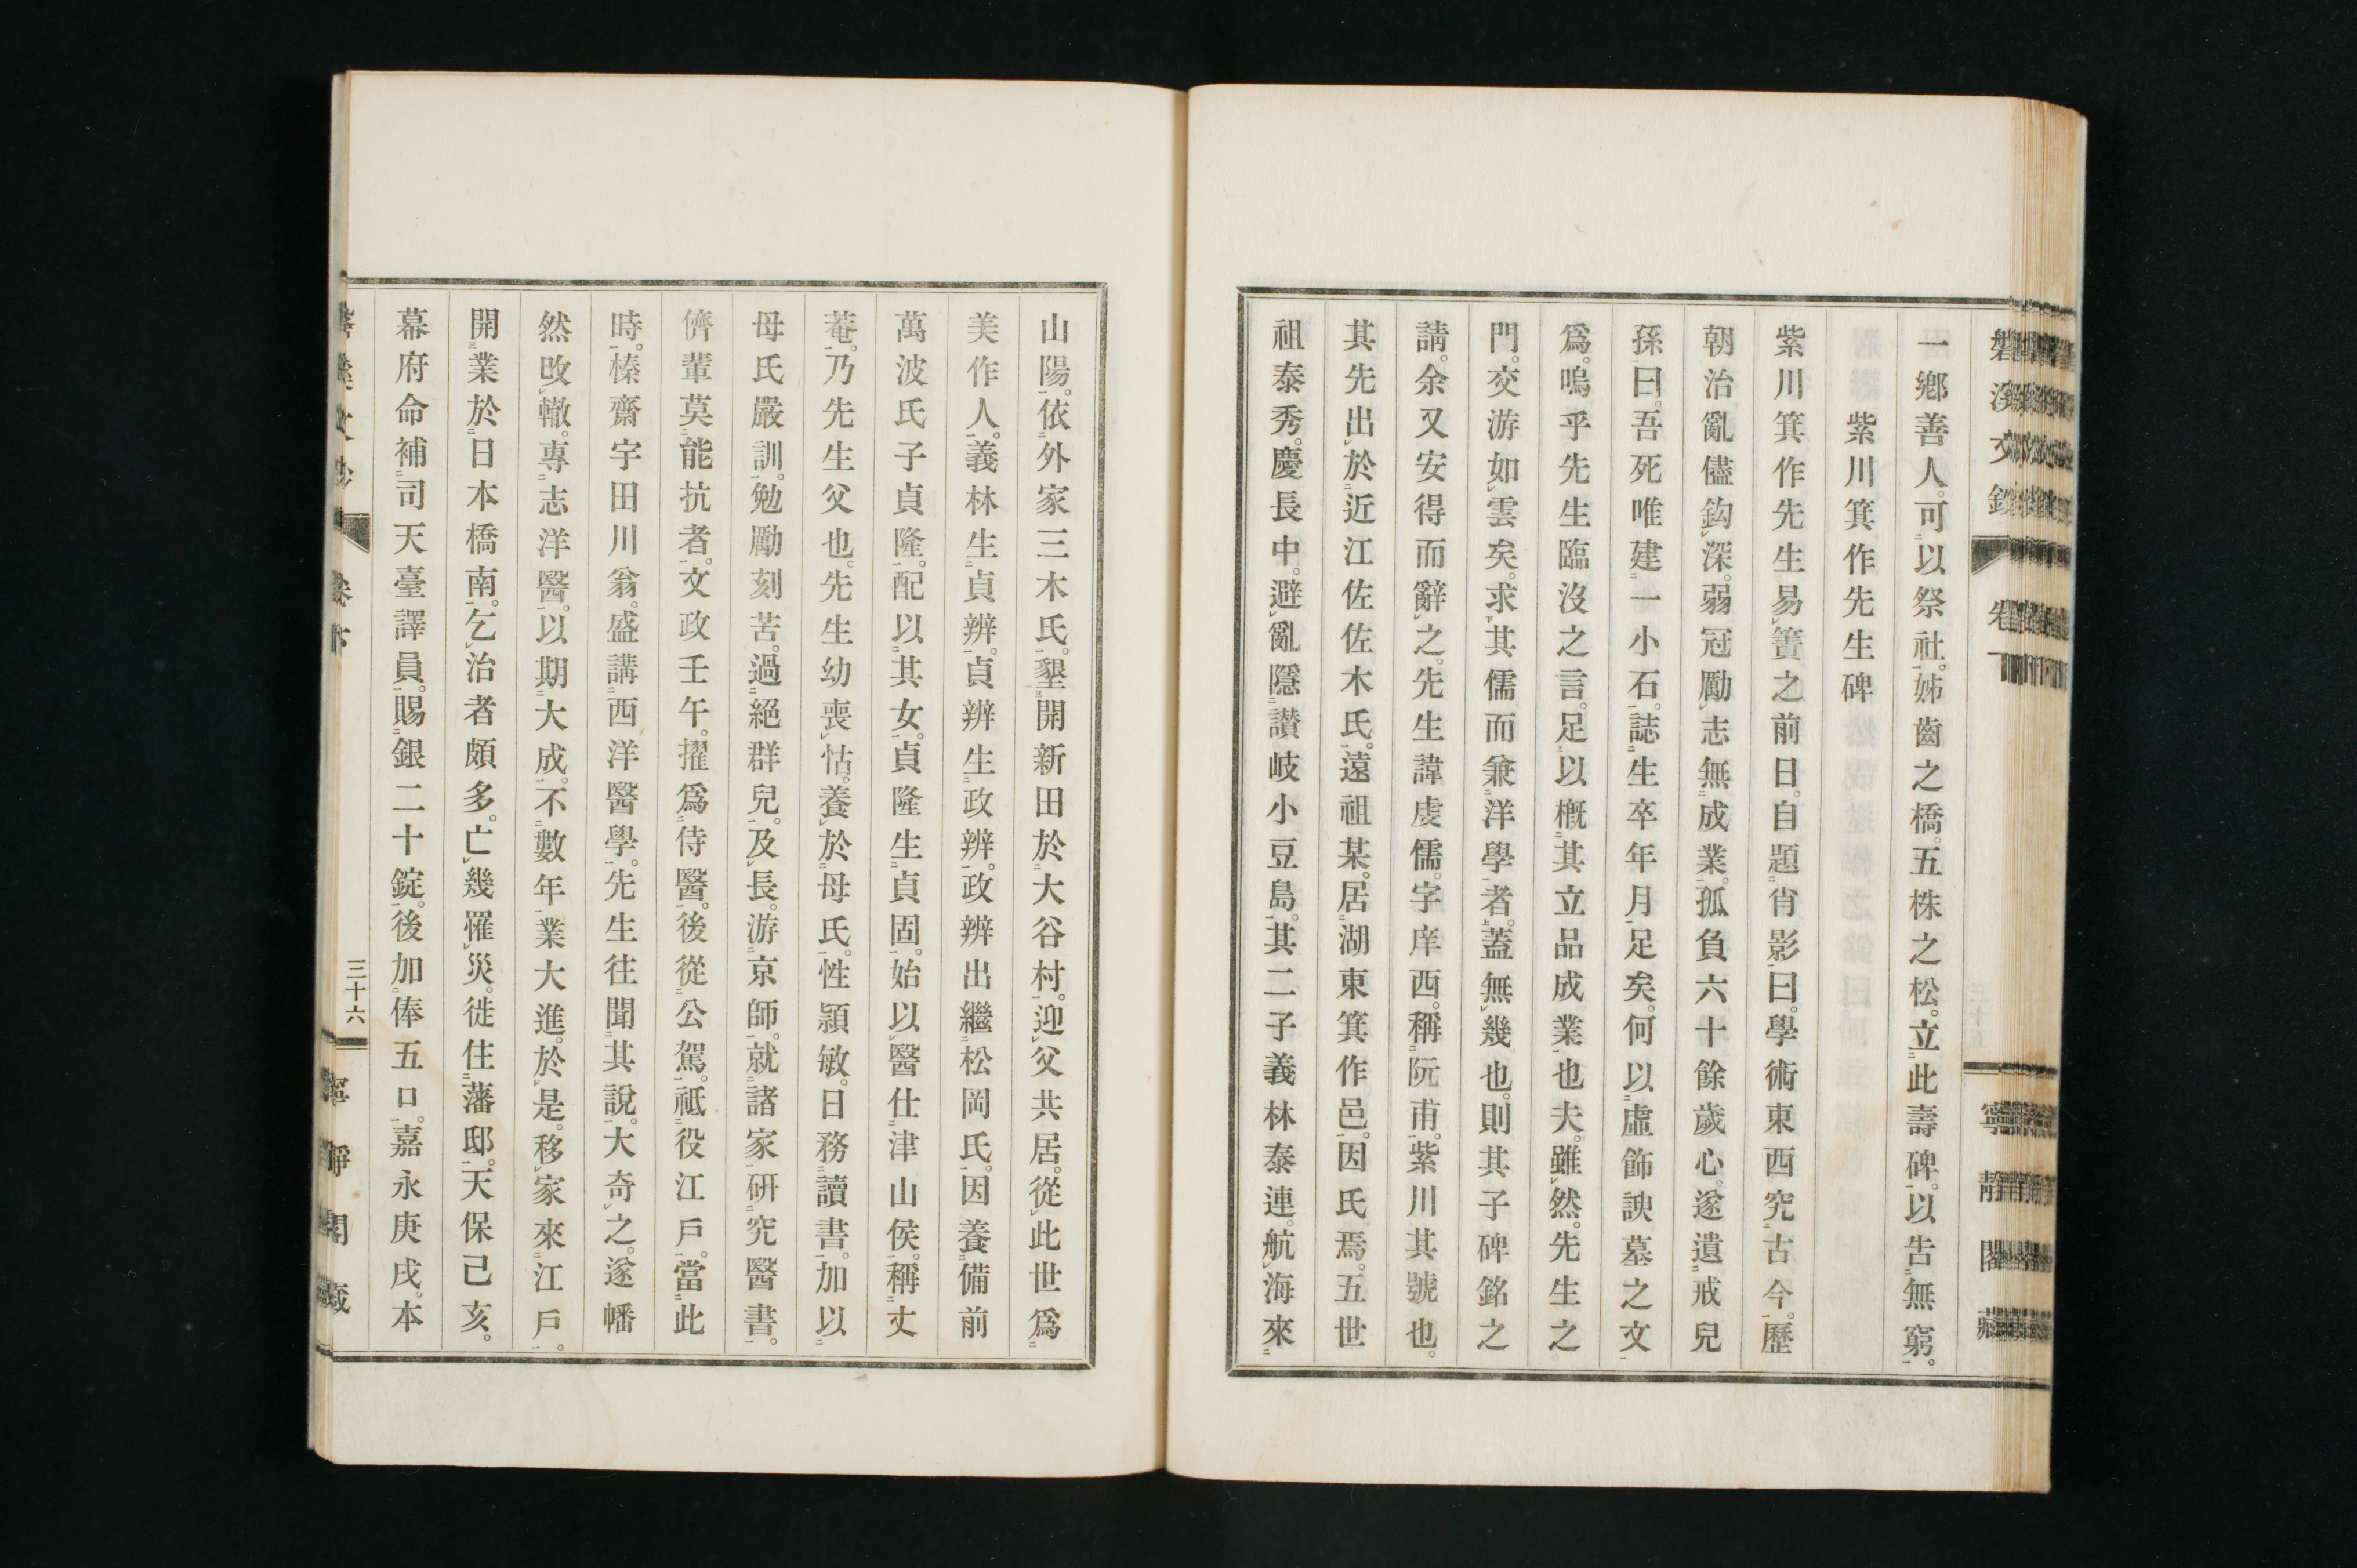 磐溪文鈔 卷下 寧靜閣藏
一鄕善人。可以祭社。姊齒之橋。五株之松。立此壽碑。以告無窮。
紫川箕作先生碑
紫川箕作先生易簀之前日。自題肖影曰。學術東西究古今。歷
朝治亂儘鈎深。弱冠勵志無成業。孤負六十餘歲心。遂遺戒兒
孫曰。吾死唯建一小石。誌生卒年月足矣。何以虛飾諛墓之文
爲。嗚乎先生臨沒之言。足以槪其立品成業也夫。雖然。先生之
門。交游如雲矣。求其儒而兼洋學者。蓋無幾也。則其子碑銘之
請。余又安得而辭之。先生諱虔儒。字庠西。稱阮甫。紫川其號也。
其先出於近江佐佐木氏。遠祖某。居湖東箕作邑。因氏焉。五世
祖泰秀。慶長中。避亂隱讃岐小豆島。其二子義林泰連。航海來
山陽。依外家三木氏。墾開新田於大谷村。迎父共居。從此世爲
美作人。義林生貞辨。貞辨生政辨。政辨出繼松岡氏。因養備前
萬波氏子貞隆。配以其女。貞隆生貞固。始以醫仕津山侯。稱丈
菴。乃先生父也。先生幼喪怙。養於母氏。性穎敏。日務讀書。加以
母氏嚴訓。勉勵刻苦。過絕群兒。及長。游京師。就諸家硏究醫書。
儕輩莫能抗者。文政壬午。擢爲侍醫。後從公駕。祗役江戶。當此
時。榛齋宇田川翁。盛講西洋醫學。先生往聞其說。大奇之。遂幡
然改轍。專志洋醫。以期大成。不數年業大進。於是。移家來江戶。
開業於日本橋南。乞治者頗多。亡幾罹災。徙住藩邸。天保己亥。
幕府命補司天臺譯員。賜銀二十錠。後加俸五口。嘉永庚戌。本
三十六